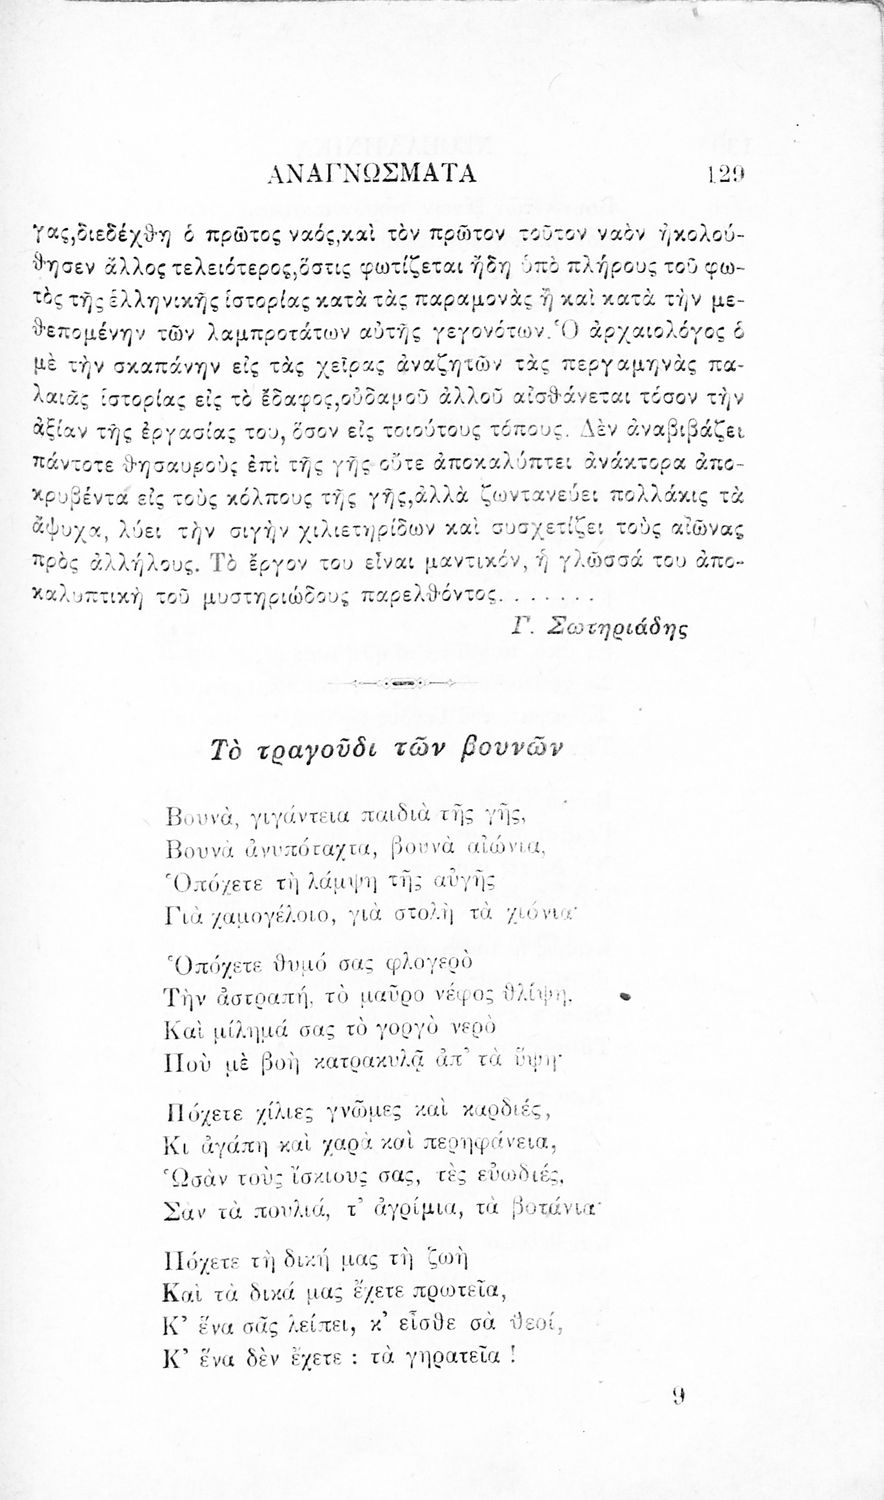 ΑΝΑΓΝΩΣΜΑΤΑ 129
γας,διεδέχθη ὁ πρῶτος ναός,καὶ τὸν πρῶτον τοῦτον ναὸν ἠκολού-
θησεν ἄλλος τελειότερος,ὅστις φωτίζεται ἤδη ὑπὸ πλήρους τοῦ φω-
τὸς τῆς ἑλληνικῆς ἱστορίας κατὰ τὰς παραμονὰς ἢ καὶ κατὰ τὴν με-
θεπομένην τῶν λαμπροτάτων αὐτῆς γεγονότων. Ὁ ἀρχαιολόγος ὁ
μὲ τὴν σκαπάνην εἰς τὰς χεῖρας ἀναζητῶν τὰς περγαμηνὰς πα-
λαιᾶς ἱστορίας εἰς τὸ ἔδαφος,οὐδαμοῦ ἀλλοῦ αἰσθάνεται τόσον τὴν
ἀξίαν τῆς ἐργασίας του, ὅσον εἰς τοιούτους τόπους. Δὲν ἀναβιβάζει
πάντοτε θησαυροὺς ἐπὶ τῆς γῆς οὔτε ἀποκαλύπτει ἀνάκτορα ἀπο-
κρυβέντα εἰς τοὺς κόλπους τῆς γῆς,ἀλλὰ ζωντανεύει πολλάκις τὰ
ἄψυχα, λύει τὴν σιγὴν χιλιετηρίδων καὶ συσχετίζει τοὺς αἰῶνας
πρὸς ἀλλήλους. Τὸ ἔργον του εἶναι μαντικόν, ἡ γλῶσσά του ἀπο-
καλυπτικὴ τοῦ μυστηριώδους παρελθόντος. . . . . . .
Γ. Σωτηριάδης
Τὸ τραγοῦδι τῶν βουνῶν
Βουνὰ, γιγάντεια παιδιὰ τῆς γῆς,
Βουνὰ ἀνυπόταχτα, βουνὰ αἰώνια,
Ὁπόχετε τὴ λάμψη τῆς αὐγῆς
Γιὰ χαμογέλοιο, γιὰ στολὴ τὰ χιόνια·
Ὁπόχετε θυμό σας φλογερὸ
Τὴν ἀστραπή, τὸ μαῦρο νέφος θλίψη,
Καὶ μίλημά σας τὸ γοργὸ νερὸ
Ποὺ μὲ βοὴ κατρακυλᾷ ἀπ᾽ τὰ ὕψη·
Πόχετε χίλιες γνῶμες καὶ καρδιές,
Κι ἀγάπη καὶ χαρὰ καὶ περηφάνεια,
Ὡσὰν τοὺς ἴσκιους σας, τὲς εὐωδιές,
Σαν τὰ πουλιά, τ᾽ ἀγρίμια, τὰ βοτάνια·
Πόχετε τὴ δική μας τὴ ζωὴ
Καὶ τὰ δικά μας ἔχετε πρωτεῖα,
Κ᾽ ἕνα σᾶς λείπει, κ᾽ εἶσθε σὰ θεοί,
Κ᾽ ἕνα δὲν ἔχετε : τὰ γηρατεῖα !
9